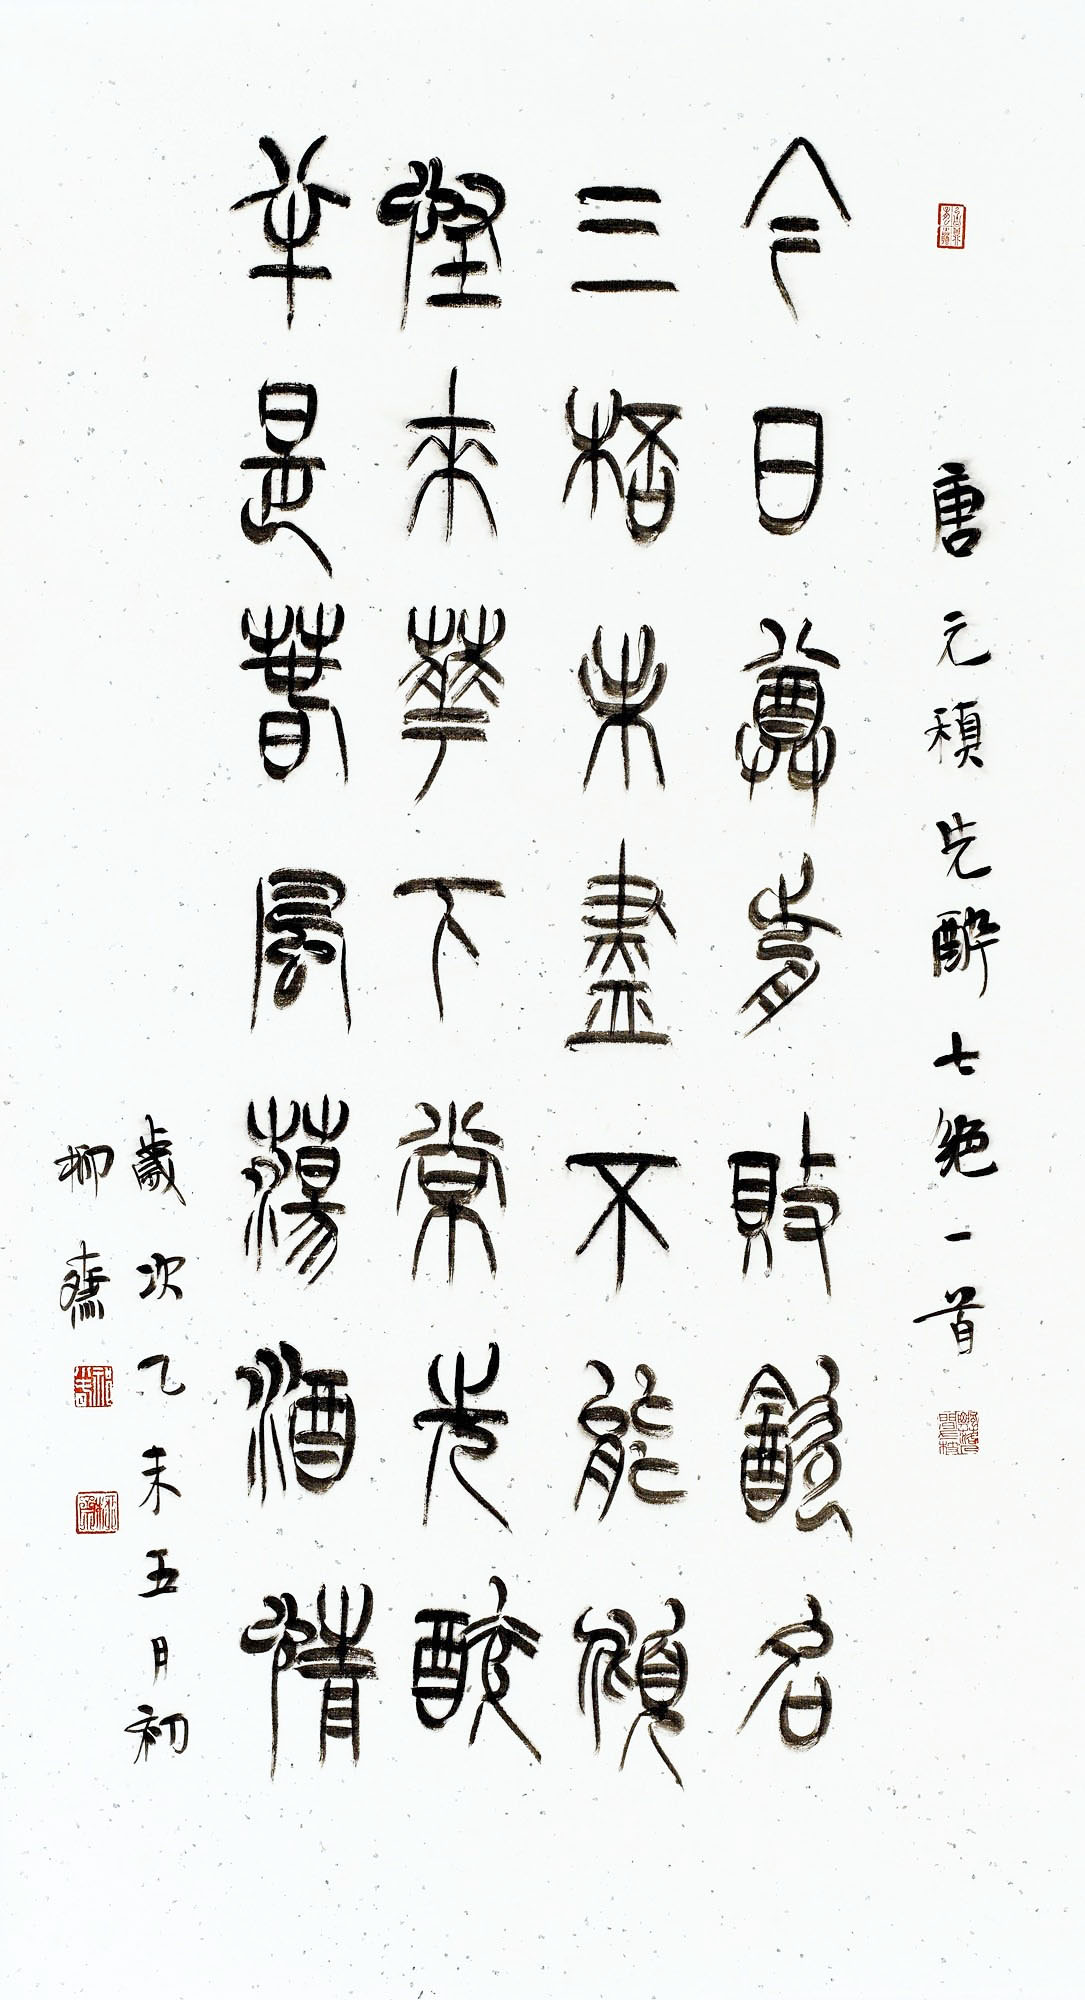 唐元稹先醉七絕一首
今日尊前敗飲名
三桮未盡不能傾
怪來華下常先醉
半是春風蕩酒情
歲次乙未五月初
柳齋